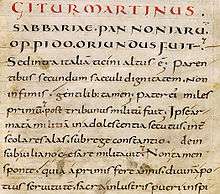 GITUR MARTINUS
SABBARIAE·PANNONIARU
OPPIDO·ORIUNDUS FUIT·
Sed intra italiā ticini altus ē; Paren
tibus secundum saeculi dignitatem non
infimis, gentilibus tamen; pater ei' miles
primū, post tribunus militū fuit; Ipse ar
matā militiā in adolescentia secutus, int
scolares alas, sub rege constantio, dein
sub iuliano cesare militauit; Non tamen
sponte, quia a primis fere annis, diuinā pot
seruitutē sacra inlustris pueri inspi